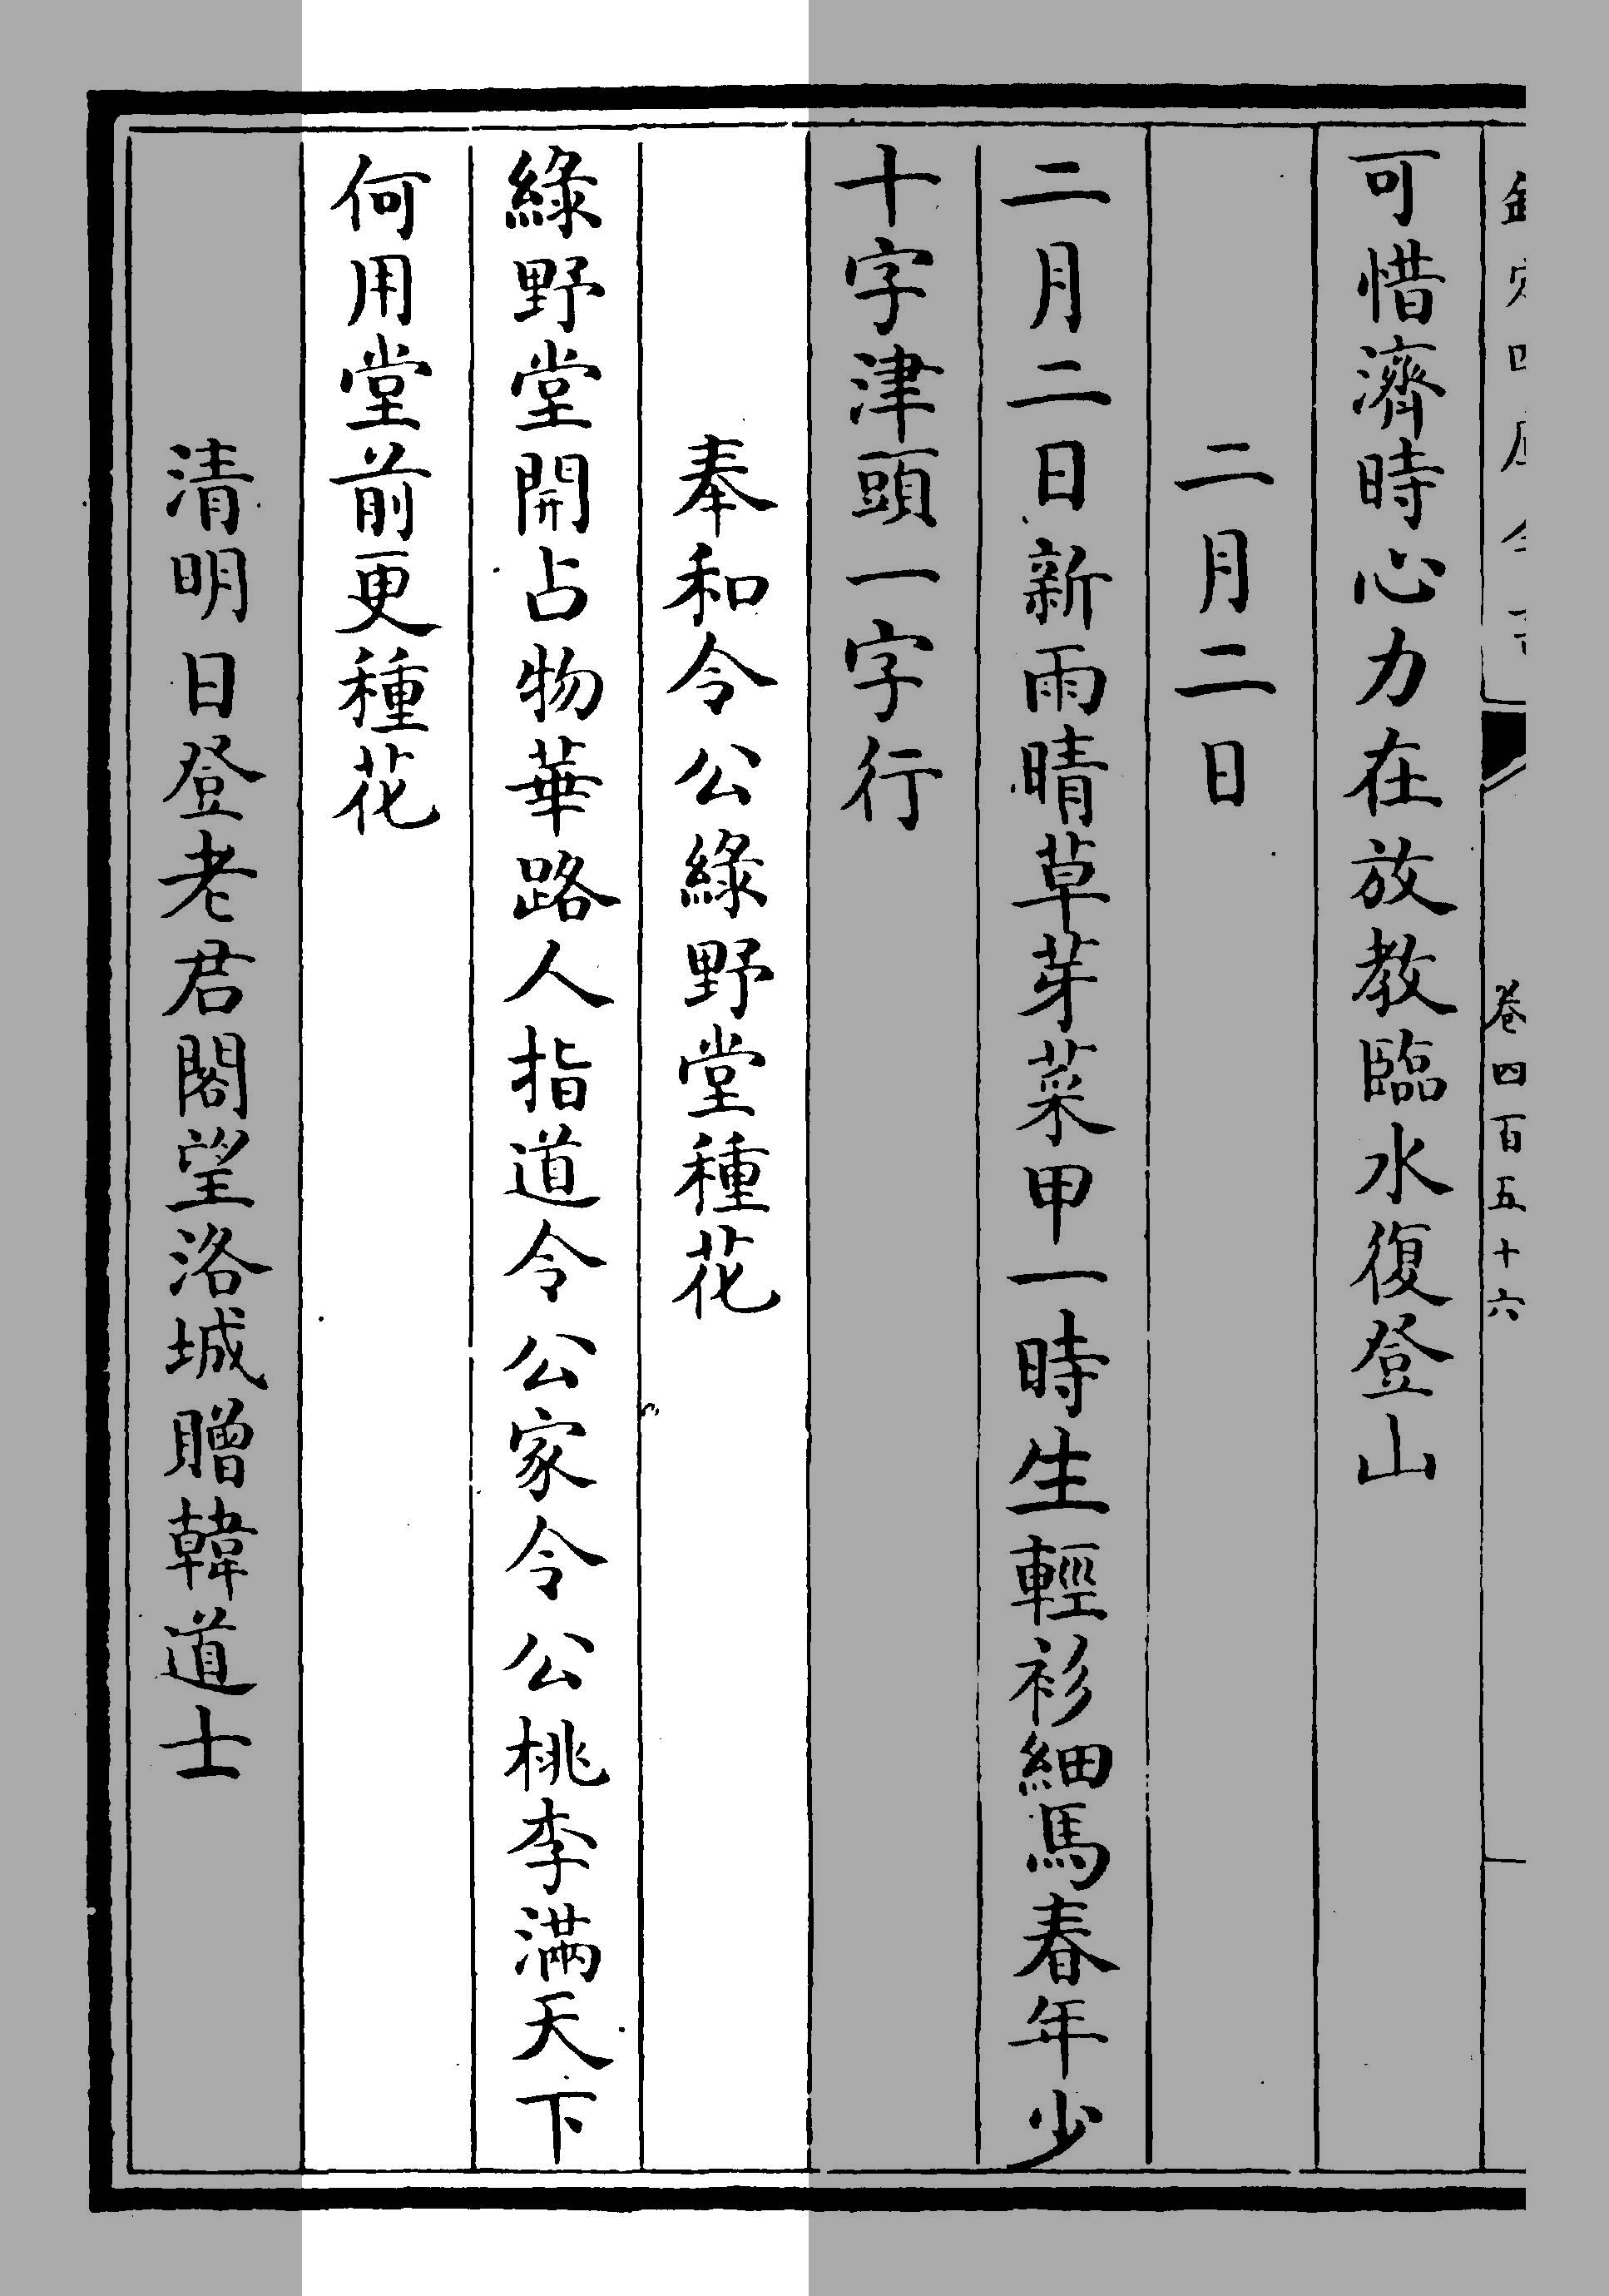 可惜濟時心力在放教臨水復登山
二月二日
二月二日新雨晴草芽菜甲一時生輕衫細馬春年少
十字津頭一字行
奉和令公綠野堂種花
綠野堂開占物華路人指道令公家令公桃李滿天下
何用堂前更種花
清明日登老君閣望洛城贈韓道士
卷四百五十六